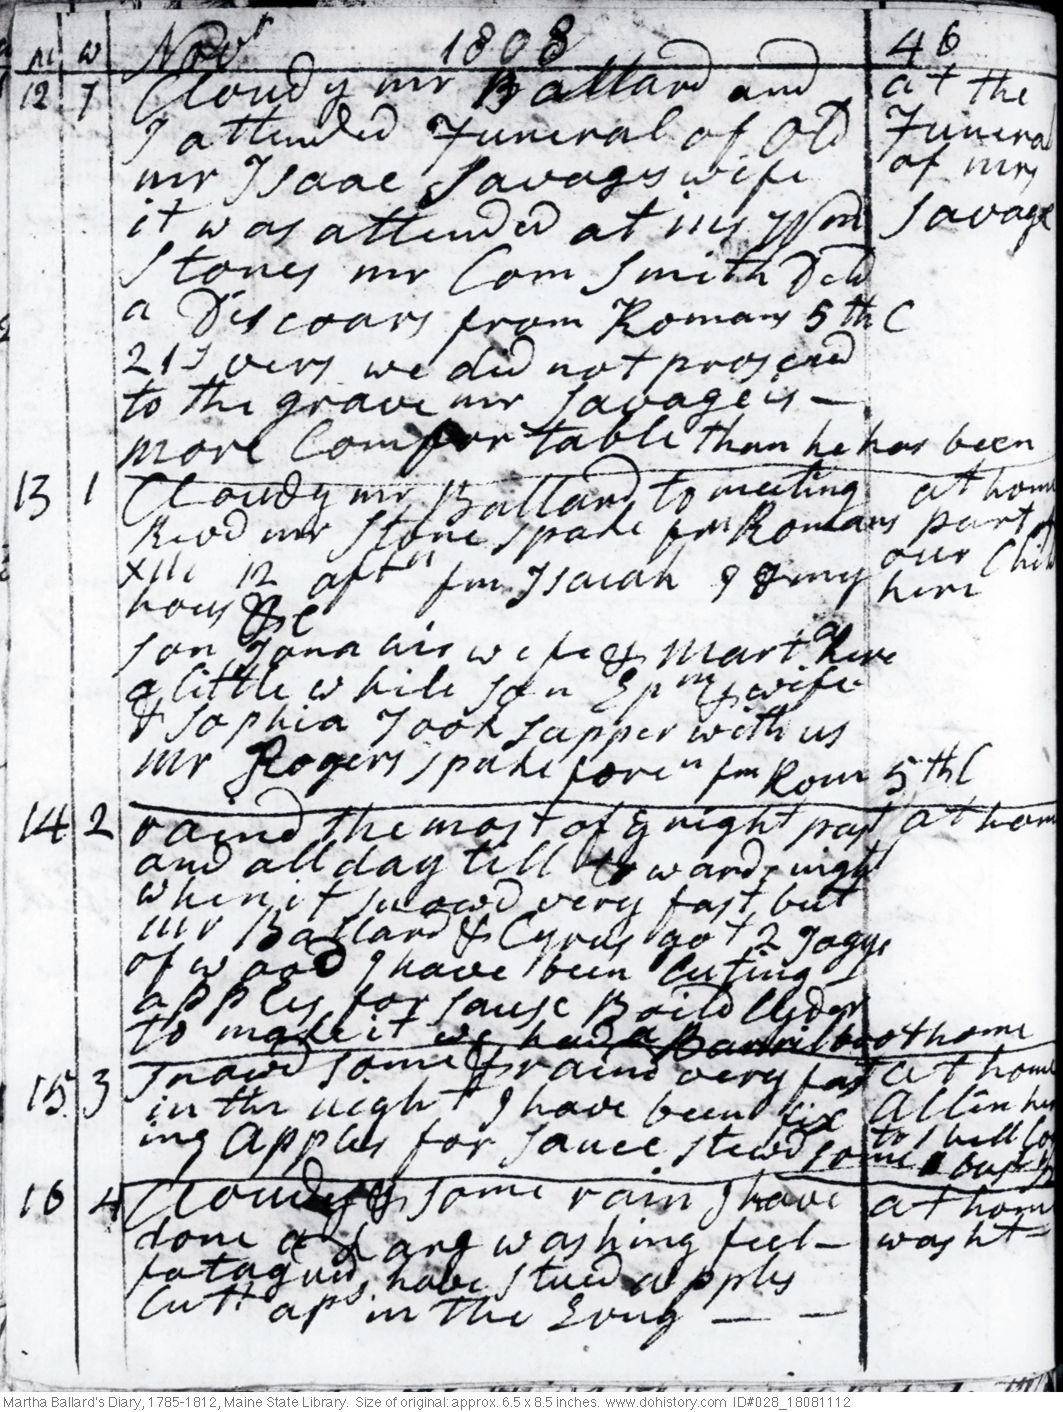 m w Novr 1808 46
12 7 Cloudy mr Ballard and at the
I attended Funeral of Old Funeral
mr Isaac Savages wife of mrs
it was attended at his Wm Savage
Stones mr Com Smith Deld
a Discoars from Romans 5 th C
21 s vers we did not proseed
to the grave mr Savage is –
more Comfortable than he has been
13 1 Cloudy mr Ballard to meeting at home
Revd mr Stone spake fm Romans part of
XIIc 12 aftn fm Isaiah 9 & my our Child
hous &c here
son Jona his wife & Martha here
a little while son Epm & wife
& Sophia Took supper with us
mr Rogers spake foren fm Rom 5 th C
14 2 raind the most of ye night past at home
and all day till towards night
when it snowd very fast but
mr Ballard & Cyrus got 2 Jaggs
of wood I have been Cuting
apples for sause Boild Cyder
to make it we had a Barril bro t home
15 3 snowd some & raind very fast at home
in the night I have been fix Allin here
ing Apples for sauce stewd some to shell
16 4 Cloudy & some rain I have at home
done a Larg washing feel – washt –
fatagud, have stued apples
Cutt aps in the Evng – –
Martha Ballard's Diary, 1785-1812, Maine State Library. Size of original: approx. 6.5 x 8.5 inches. www.dohistory.com ID#028_18081112